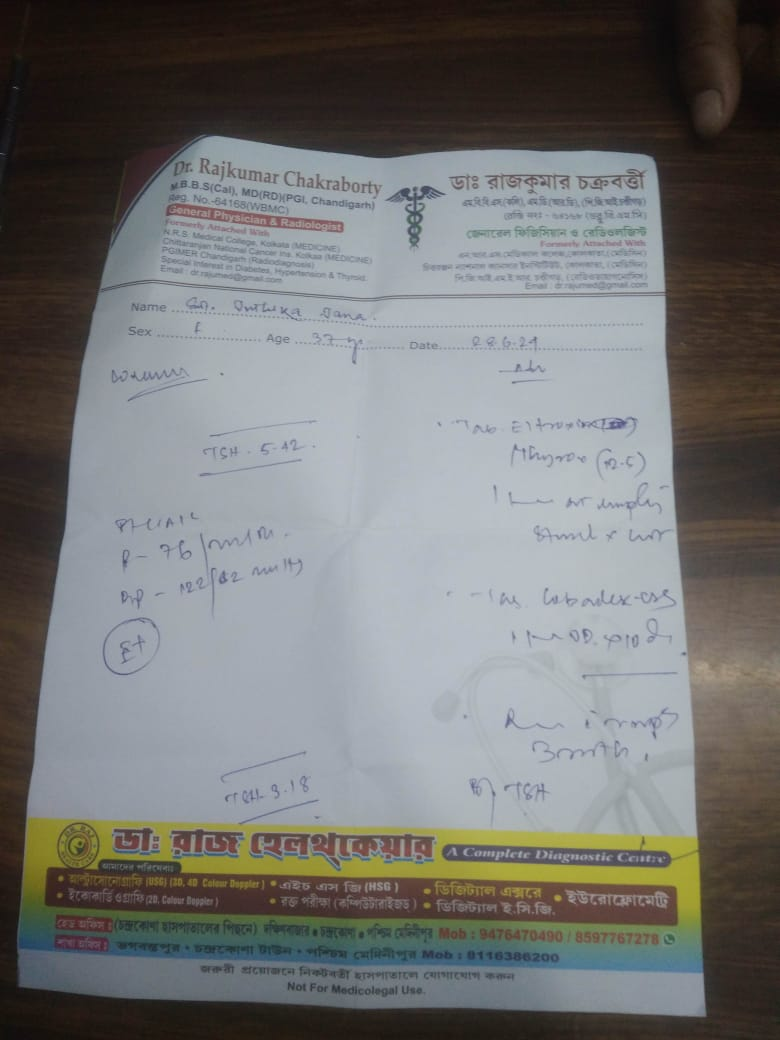 Dr. Rajkumar Chakraborty
M.B.B.S(Cal), MD(RD)(PGI, Chandigarh)
Reg. No.-64168(WBMC)
General Physician & Radiologist
Formerly Attached With
N.R.S. Medical College, Kolkata (MEDICINE)
Chittaranjan National Cancer Ins. Kolkaa (MEDICINE)
PGIMER Chandigarh (Radiodiagnosis)
Special Interest in Diabetes, Hypertension & Thyroid.
Email : dr.rajumed@gmail.com
ডাঃ রাজকুমার চক্রবর্ত্তী
এম.বি.বি.এস(কলি), এম.ডি (আর.ডি), (পি.জি.আই চণ্ডীগড়)
রেজি নং - ৬৪১৬৮ (ডব্লু.বি.এম.সি)
জেনারেল ফিজিসিয়ান ও রেডিওলজিস্ট
Formerly Attached With
এন.আর.এস. মেডিক্যাল কলেজ, কোলকাতা, (মেডিসিন)
চিত্তরঞ্জন ন্যাশনাল ক্যানসার ইনস্টিটিউট, কোলকাতা, (মেডিসিন)
পি.জি.আই.এম.ই.আর. চণ্ডীগড়, (রেডিওডায়াগনোসিস)
Email : dr.rajumed@gmail.com
Name
Sex F Age 37 y Date 28.6.24
TSH - 5.42
Tab. Eltroxin
(12.5)
1 empty
P - 76 / min
BP - 122/82 mmHg
Tab. Cobadex-CZS
1 OD x 10 d
TSH - 3.18
TSH
DR. RAJ
ডাঃ রাজ হেলথ্কেয়ার
A Complete Diagnostic Centre
আমাদের পরিষেবাঃ
• আল্ট্রাসোনোগ্রাফি (USG) (3D, 4D Colour Doppler) • এইচ এস জি (HSG) • ডিজিট্যাল এক্সরে • ইউরোফ্লোমেট্রি
• ইকোকার্ডিওগ্রাফি (2D, Colour Doppler) • রক্ত পরীক্ষা (কম্পিউটারাইজড) • ডিজিট্যাল ই.সি.জি.
হেড অফিস : (চন্দ্রকোণা হাসপাতালের পিছনে) দক্ষিণবাজার • চন্দ্রকোণা • পশ্চিম মেদিনীপুর Mob : 9476470490 / 8597767278
শাখা অফিস : ভগবন্তপুর • চন্দ্রকোণা টাউন • পশ্চিম মেদিনীপুর Mob : 8116386200
জরুরী প্রয়োজনে নিকটবর্তী হাসপাতালে যোগাযোগ করুন
Not For Medicolegal Use.